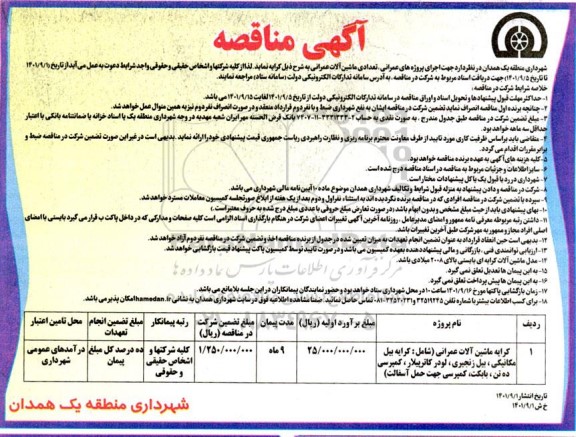 آگهی مناقصه
شهرداری منطقه یک همدان در نظر دارد جهت اجرای پروژه های عمرانی، تعدادی ماشین آلات عمرانی به شرح ذیل کرایه نماید. لذا از کلیه شرکتها و اشخاص حقیقی و حقوقی واجد شرایط دعوت به عمل می آید از تاریخ ۱۴۰۱/۹/۱
تا تاریخ ۱۴۰۱/۹/۵ جهت دریافت اسناد مربوط به شرکت در مناقصه، به آدرس سامانه تدارکات الکترونیکی دولت (سامانه ستاد) مراجعه نمایند.
خلاصه شرایط شرکت در مناقصه:
۱- حداکثر مهلت قبول پیشنهادها و تحویل اسناد و اوراق مناقصه در سامانه تدارکات الکترونیکی دولت از تاریخ ۱۴۰۱/۹/۵ لغایت ۱۴۰۱/۹/۱۵ می باشد.
۲- چنانچه برنده اول مناقصه انصراف نماید تضمین شرکت در مناقصه ایشان به نفع شهرداری ضبط و با نفر دوم قرارداد منعقد و در صورت انصراف نفر دوم نیز به همین منوال عمل خواهد شد.
۳- مبلغ تضمین شرکت در مناقصه طبق جدول مندرج، به صورت نقدی به حساب بانک قرض الحسنه مهر ایران شعبه مهدیه در وجه شهرداری منطقه یک یا اسناد خزانه یا ضمانتنامه بانکی با اعتبار
حداقل سه ماهه خواهد بود.
۴- متقاضی باید براساس ظرفیت کاری مورد تایید از طرف معاونت محترم برنامه ریزی و نظارت راهبردی ریاست جمهوری قیمت پیشنهادی خود را ارائه نماید. بدیهی است در غیر این صورت تضمین شرکت در مناقصه ضبط و
برابر مقررات اقدام می گردد.
۵- کلیه هزینه های آگهی به عهده برنده مناقصه خواهد بود.
۶- سایر اطلاعات و جزئیات مربوط به مناقصه در اسناد مناقصه درج شده است.
۷- شهرداری در رد یا قبول یک یا کل پیشنهادات مختار است.
۸- شرکت در مناقصه و دادن پیشنهاد به منزله قبول شرایط و تکالیف شهرداری همدان موضوع ماده ۱۰ آیین نامه مالی شهرداری می باشد.
۹- سپرده یا تضمین شرکت در مناقصه افرادی که در مناقصه برنده نگردیده اند به استثناء نفر اول و دوم بعد از یک هفته از ابلاغ صورتجلسه کمیسیون معاملات مسترد خواهد شد.
۱۰- بهای پیشنهادی باید از حیث مبلغ مشخص و بدون ابهام باشد (در صورت تعارض مبلغ حروفی با عددی مبلغ درج شده به حروف معتبر است)
۱۱- داشتن رتبه مربوطه معرفی نامه ممهور و امضای مدیرعامل، روزنامه آخرین آگهی تغییرات امضای شرکت در هنگام بارگذاری اسناد الزامی است کلیه صفحات و مدارکی که در داخل پاکت ب قرار می گیرد بایستی با امضای
اصلی افراد مجاز و ممهور به مهر شرکت طبق آخرین تغییرات باشد.
۱۲- بدیهی است حین انعقاد قرارداد به عنوان تضمین انجام تعهدات به میزان تعیین شده در جدول از برنده مناقصه اخذ و تضمین شرکت در مناقصه نفر دوم آزاد خواهد شد.
۱۳- ارزیابی توانمندی فنی، بازرگانی و مالی پیشنهاد دهنده بعهده کمیسیون می باشد و در صورت تایید توسط کمیسیون پاکت قیمت پیشنهادی بازگشایی خواهد شد.
۱۴- مدل ماشین آلات کرایه ای بایستی بالای ۲۰۰۸ میلادی باشد.
۱۵- به این پیمان ها تعدیل تعلق نمی گیرد.
۱۶- به این پیمان ها پیش پرداخت تعلق نمی گیرد.
۱۷- زمان بازگشایی پاکتها مورخ ۱۴۰۱/۹/۱۶ ساعت ۱۰ در محل شهرداری ستاد خواهد بود و حضور نمایندگان پیمانکاران در این جلسه بلامانع می باشد.
۱۸- برای کسب اطلاعات بیشتر با شماره تلفن تماس حاصل نمایید. ضمنا مشاهده اطلاعیه فوق در سایت شهرداری همدان به نشانی hamedan.ir امکان پذیر می باشد.
ردیف نام پروژه مبلغ برآورد اولیه (ریال) مدت پیمان مبلغ تضمین شرکت در مناقصه (ریال) رتبه پیمانکار مبلغ تضمین انجام تعهدات محل تامین اعتبار
۱ کرایه ماشین آلات عمرانی (شامل: کرایه بیل مکانیکی، بیل زنجیری، لودر کاترپیلار، کمپرسی ده تن، بابکت، کمپرسی جهت حمل آسفالت) ۲۵/۰۰۰/۰۰۰/۰۰۰ ۹ ماه ۱/۲۵۰/۰۰۰/۰۰۰ کلیه شرکتها و اشخاص حقیقی و حقوقی ده درصد کل مبلغ پیمان درآمدهای عمومی شهرداری
تاریخ انتشار: ۱۴۰۱/۹/۱
خ ش: ۱۴۰۱/۹/۱
شهرداری منطقه یک همدان